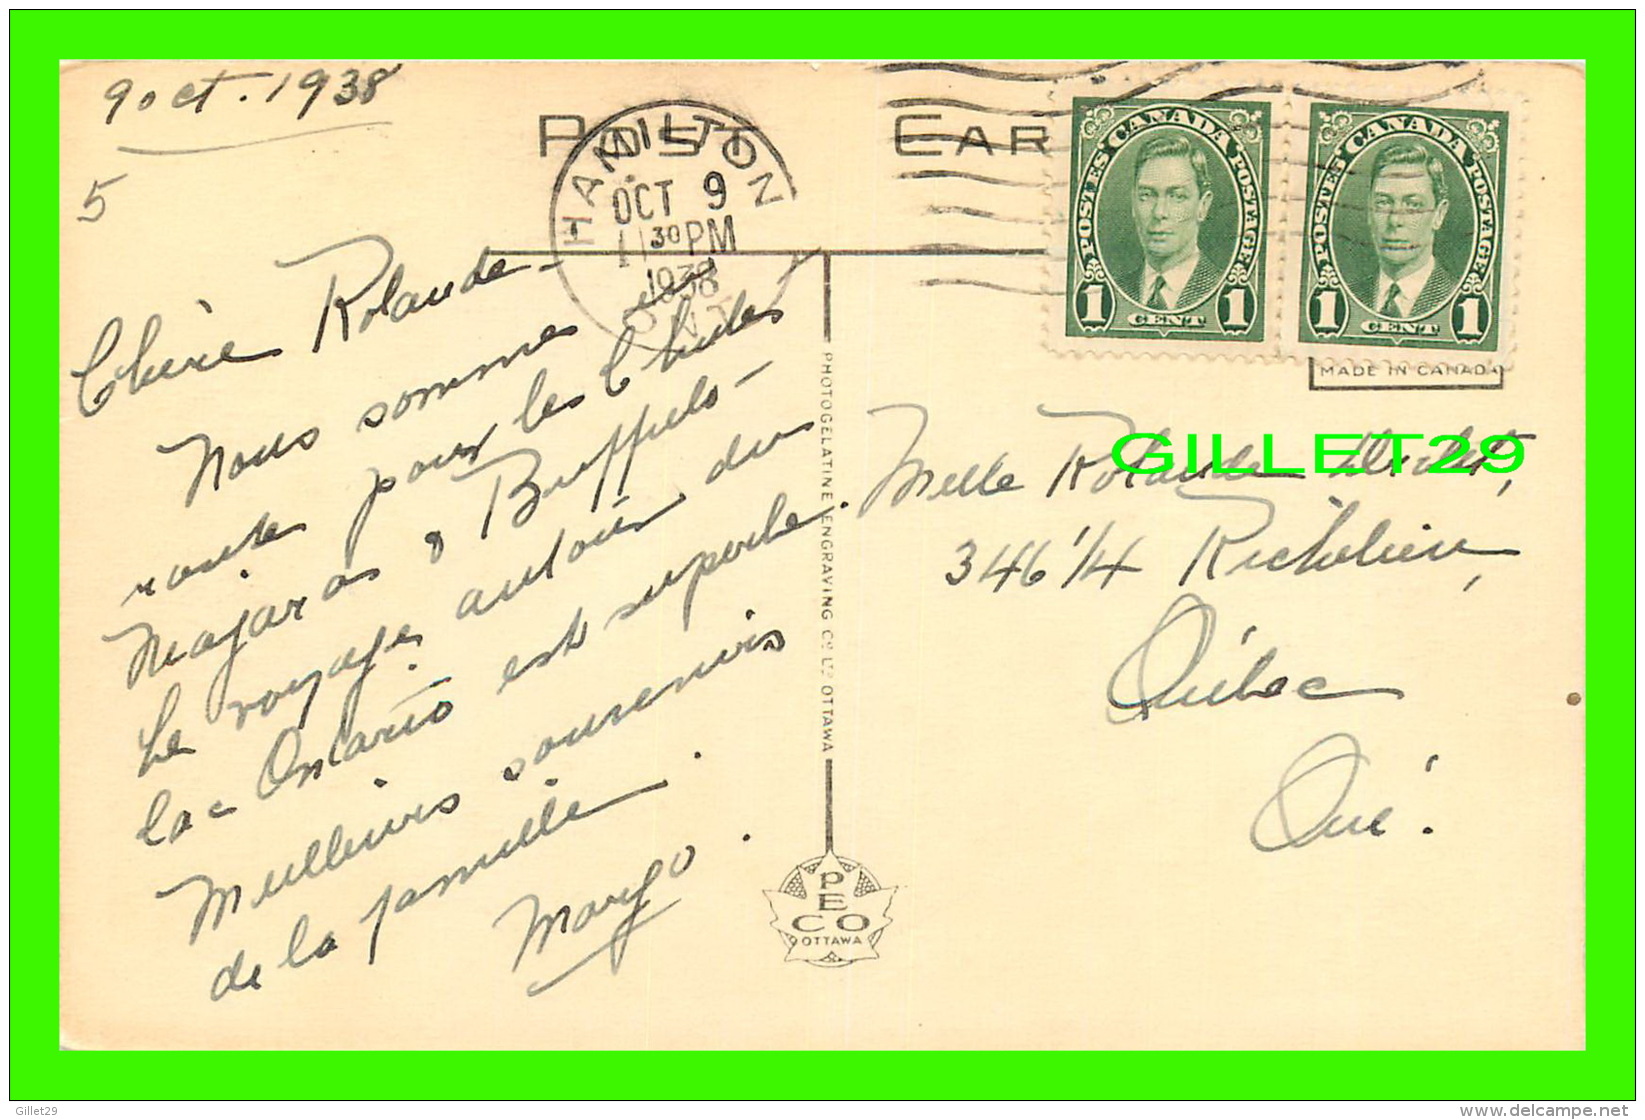 9 oct. 1938
5
POST CAR
HAMILTON
OCT 9
11 30 PM
1938
ONT
POSTES CANADA POSTAGE
1 CENT 1
POSTES CANADA POSTAGE
1 CENT 1
MADE IN CANADA
Chère Rolande -
Nous sommes en
route pour les Chutes
Niagaras & Buffalo -
Le voyage autour du
lac Ontario est superbe.
Meilleurs souvenirs
de la famille.
Margo.
PHOTOGELATINE ENGRAVING CO. LTD. OTTAWA
PECO
OTTAWA
GILLET29
Melle Rolande
346 1/4 Richelieu,
Québec
Qué.
Gillet29
delcampe.net